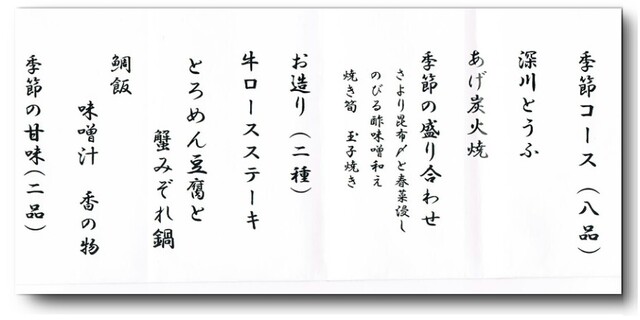 季節コース（八品）
深川とうふ
あげ炭火焼
季節の盛り合わせ
さより昆布〆と春菜浸し
のびる酢味噌和え
焼き筍　玉子焼き
お造り（二種）
牛ロースステーキ
とろめん豆腐と
蟹みぞれ鍋
鯛飯
味噌汁　香の物
季節の甘味（二品）